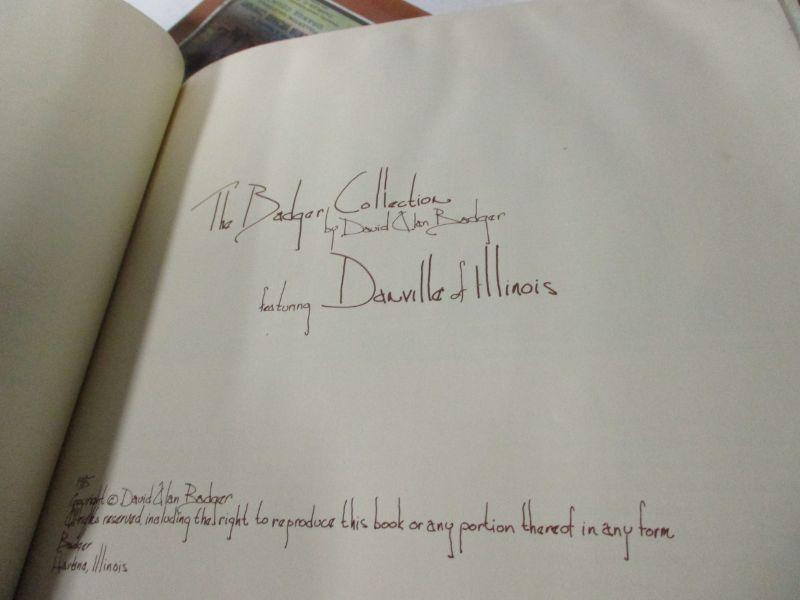 The Badger Collection
by David Alan Badger
featuring Danville of Illinois
Copyright © David Alan Badger
All rights reserved, including the right to reproduce this book or any portion thereof in any form
Badger
Havana, Illinois